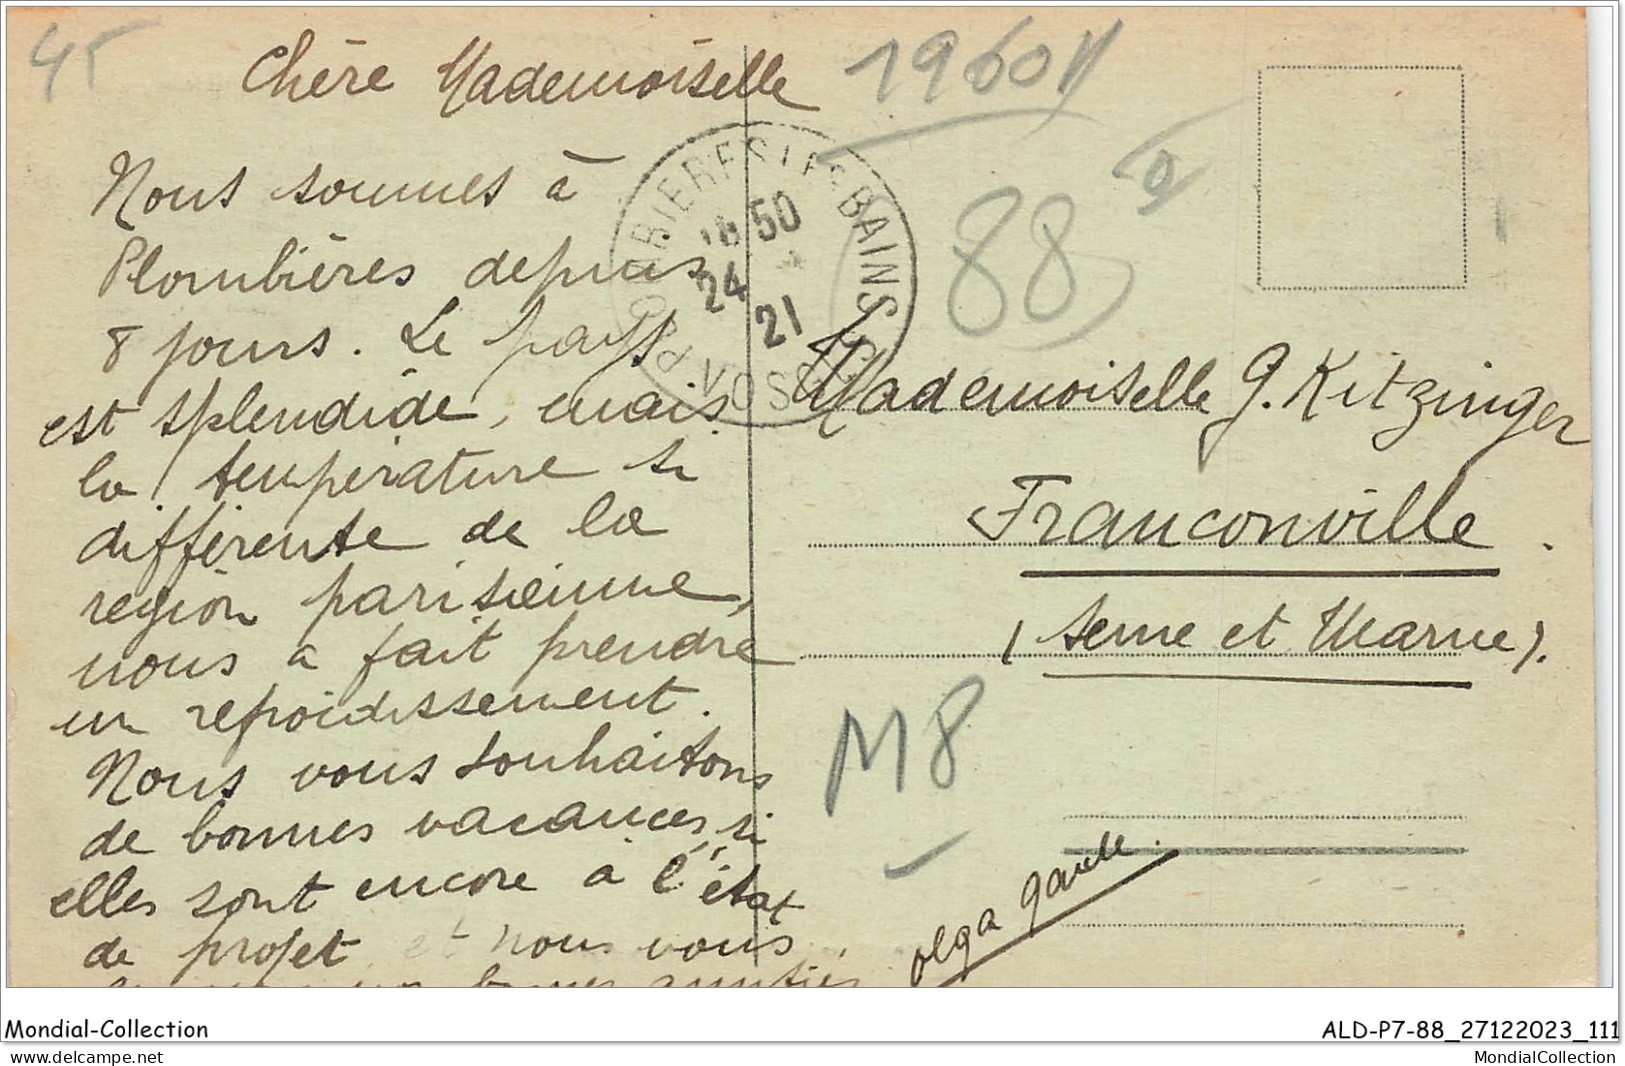 45
Chère Mademoiselle
19601
Nous sommes à
Plombières depuis
8 jours. Le pays
est splendide, mais
la température si
différente de la
région parisienne,
nous a fait prendre
un refroidissement.
Nous vous souhaitons
de bonnes vacances, si
elles sont encore à l'état
de projet et nous vous
bonnes amitiés
PLOMBIERES LES BAINS
18 50
24
21
VOSGES
88
Mademoiselle G. Kitzinger
Franconville.
(Seine et Marne).
M8
Olga Gaulle.
Mondial-Collection
ALD-P7-88_27122023_111
www.delcampe.net
MondialCollection